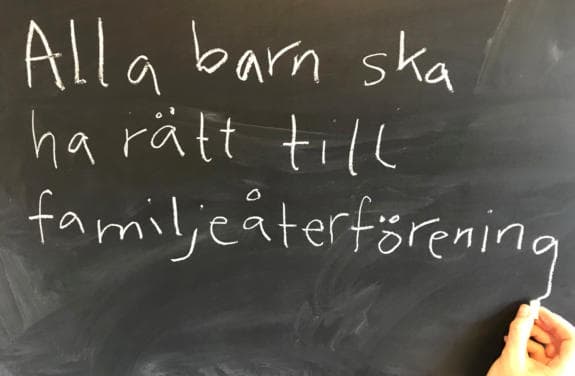 Alla barn ska
ha rätt till
familjeåterförening